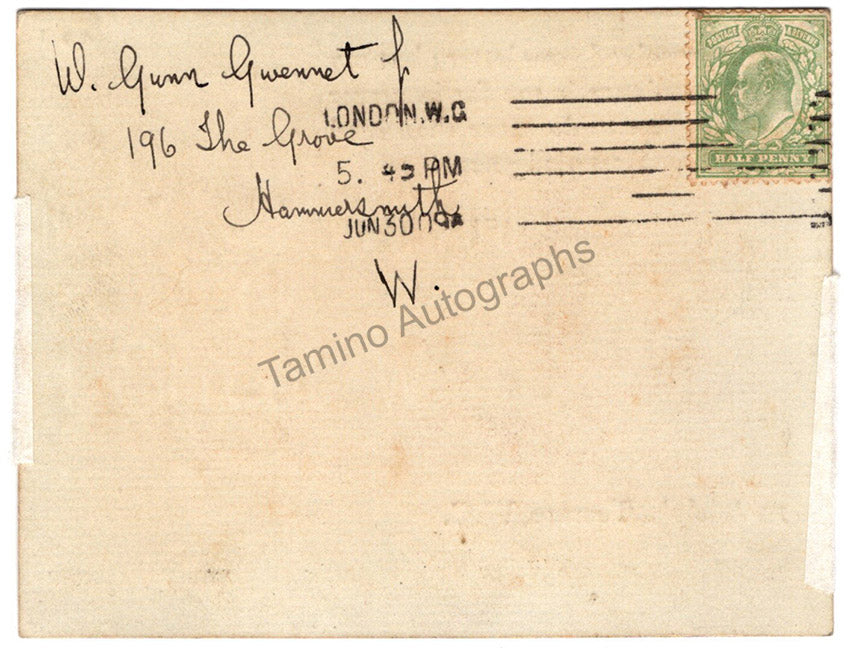 W. Gunn Gwennet
POSTAGE REVENUE
LONDON.W.C
196 The Grove
5. 45 PM
Hammersmith
JUN 30 09
W.
HALF PENNY
Tamino Autographs